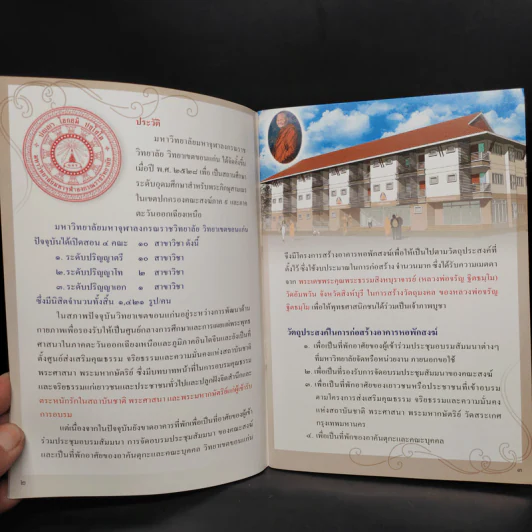 ประวัติ
มหาวิทยาลัยมหาจุฬาลงกรณราช
วิทยาลัย วิทยาเขตขอนแก่น ได้จัดตั้งขึ้น
เมื่อปี พ.ศ. ๒๕๒๘ เพื่อ เป็นสถานศึกษา
ระดับอุดมศึกษาสำหรับพระภิกษุสามเณร
ในเขตปกครองคณะสงฆ์ภาค ๙ และภาค
ตะวันออกเฉียงเหนือ
มหาวิทยาลัยมหาจุฬาลงกรณราชวิทยาลัย วิทยาเขตขอนแก่น
ปัจจุบันได้เปิดสอน ๔ คณะ ๑๐ สาขาวิชา ดังนี้
๑. ระดับปริญญาตรี ๑๐ สาขาวิชา
๒. ระดับปริญญาโท ๒ สาขาวิชา
๓. ระดับปริญญาเอก ๑ สาขาวิชา
ซึ่งมีนิสิตจำนวนทั้งสิ้น ๑,๔๒๑ รูป/คน
ในสภาพปัจจุบันวิทยาเขตขอนแก่นอยู่ระหว่างการพัฒนาด้าน
กายภาพเพื่อรองรับให้เป็นศูนย์กลางการศึกษาและการเผยแผ่พระพุทธ
ศาสนาในภาคตะวันออกเฉียงเหนือและภูมิภาคอินโดจีนและยังเป็นที่
ตั้งศูนย์ส่งเสริมคุณธรรม จริยธรรมและความมั่นคงแห่งสถาบันชาติ
พระศาสนา พระมหากษัตริย์ ซึ่งมีบทบาทหน้าที่ในการอบรมคุณธรรม
และจริยธรรมแก่เยาวชนและประชาชนทั่วไปและปลูกฝังจิตสำนึกและ
ตระหนักรักในสถาบันชาติ พระศาสนา และพระมหากษัตริย์แก่ผู้เข้ารับ
การอบรม
แต่เนื่องจากในปัจจุบันยังขาดอาคารที่พักเพื่อเป็นที่อาศัยของผู้เข้า
ร่วมประชุมอบรมสัมมนา การจัดอบรมประชุมสัมมนา ของคณะสงฆ์
และเป็นที่พักอาศัยของอาคันตุกะและคณะบุคคล วิทยาเขตขอนแก่น
๒
จึงมีโครงการสร้างอาคารหอพักสงฆ์เพื่อให้เป็นไปตามวัตถุประสงค์ที่
ตั้งไว้ ซึ่งใช้งบประมาณในการก่อสร้าง จำนวนมาก ซึ่งได้รับความเมตตา
จาก พระเดชพระคุณพระธรรมสิงหบุราจารย์ (หลวงพ่อจรัญ ฐิตธมฺโม)
วัดอัมพวัน จังหวัดสิงห์บุรี ในการสร้างวัตถุมงคล ของหลวงพ่อจรัญ
ฐิตธมฺโม เพื่อให้พุทธศาสนิกชนได้ร่วมเป็นเจ้าภาพบูชา
วัตถุประสงค์ในการก่อสร้างอาคารหอพักสงฆ์
๑. เพื่อเป็นที่พักอาศัยของผู้เข้าร่วมประชุมอบรมสัมมนาต่างๆ
ที่มหาวิทยาลัยจัดหรือหน่วยงาน ภายนอกขอใช้
๒. เพื่อเป็นที่รองรับการจัดอบรมประชุมสัมมนาของคณะสงฆ์
๓. เพื่อเป็นที่พักอาศัยของเยาวชนหรือประชาชนที่เข้าอบรม
ตามโครงการส่งเสริมคุณธรรม จริยธรรม และความมั่นคง
แห่งสถาบันชาติ พระศาสนา พระมหากษัตริย์ วัดสระเกศ
กรุงเทพมหานคร
๔. เพื่อเป็นที่พักของอาคันตุกะและคณะบุคคล
๓